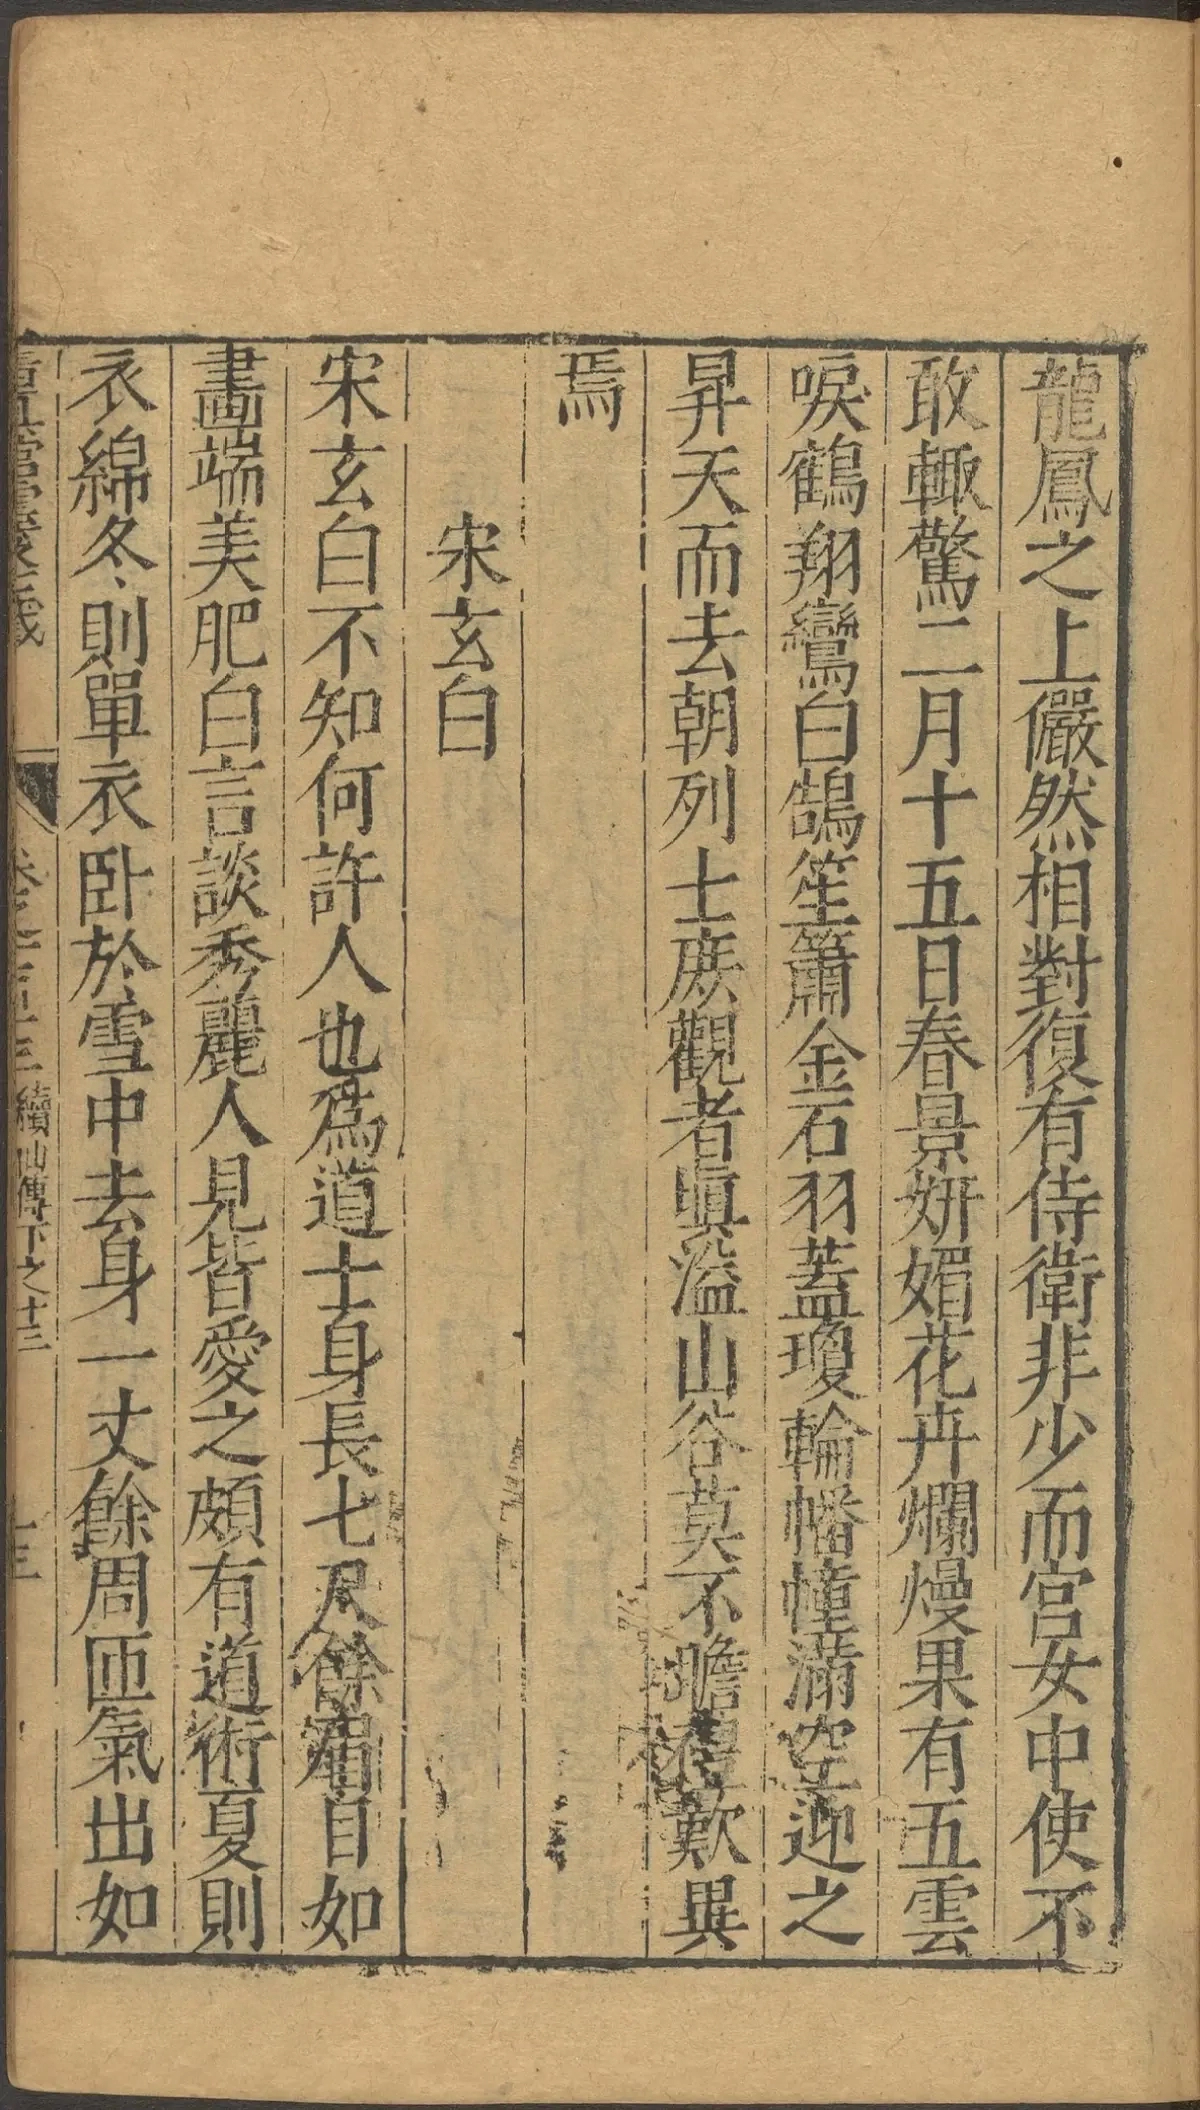 龍鳳之上儼然相對復有侍衛非少而宮女中使不
敢輙驚二月十五日春景妍媚花卉爛熳果有五雲
唳鶴翔鸞白鵠笙簫金石羽蓋瓊輪幡幢滿空迎之
昇天而去朝列士庻觀者嗔溢山谷莫不瞻禮歎異
焉
宋玄白
宋玄白不知何許人也爲道士身長七尺餘眉目如
畫端美肥白言談秀麗人見皆愛之頗有道術夏則
衣綿冬則單衣卧於雪中去身一丈餘周匝氣出如
卷之一百十三續仙傳下之十三 十三